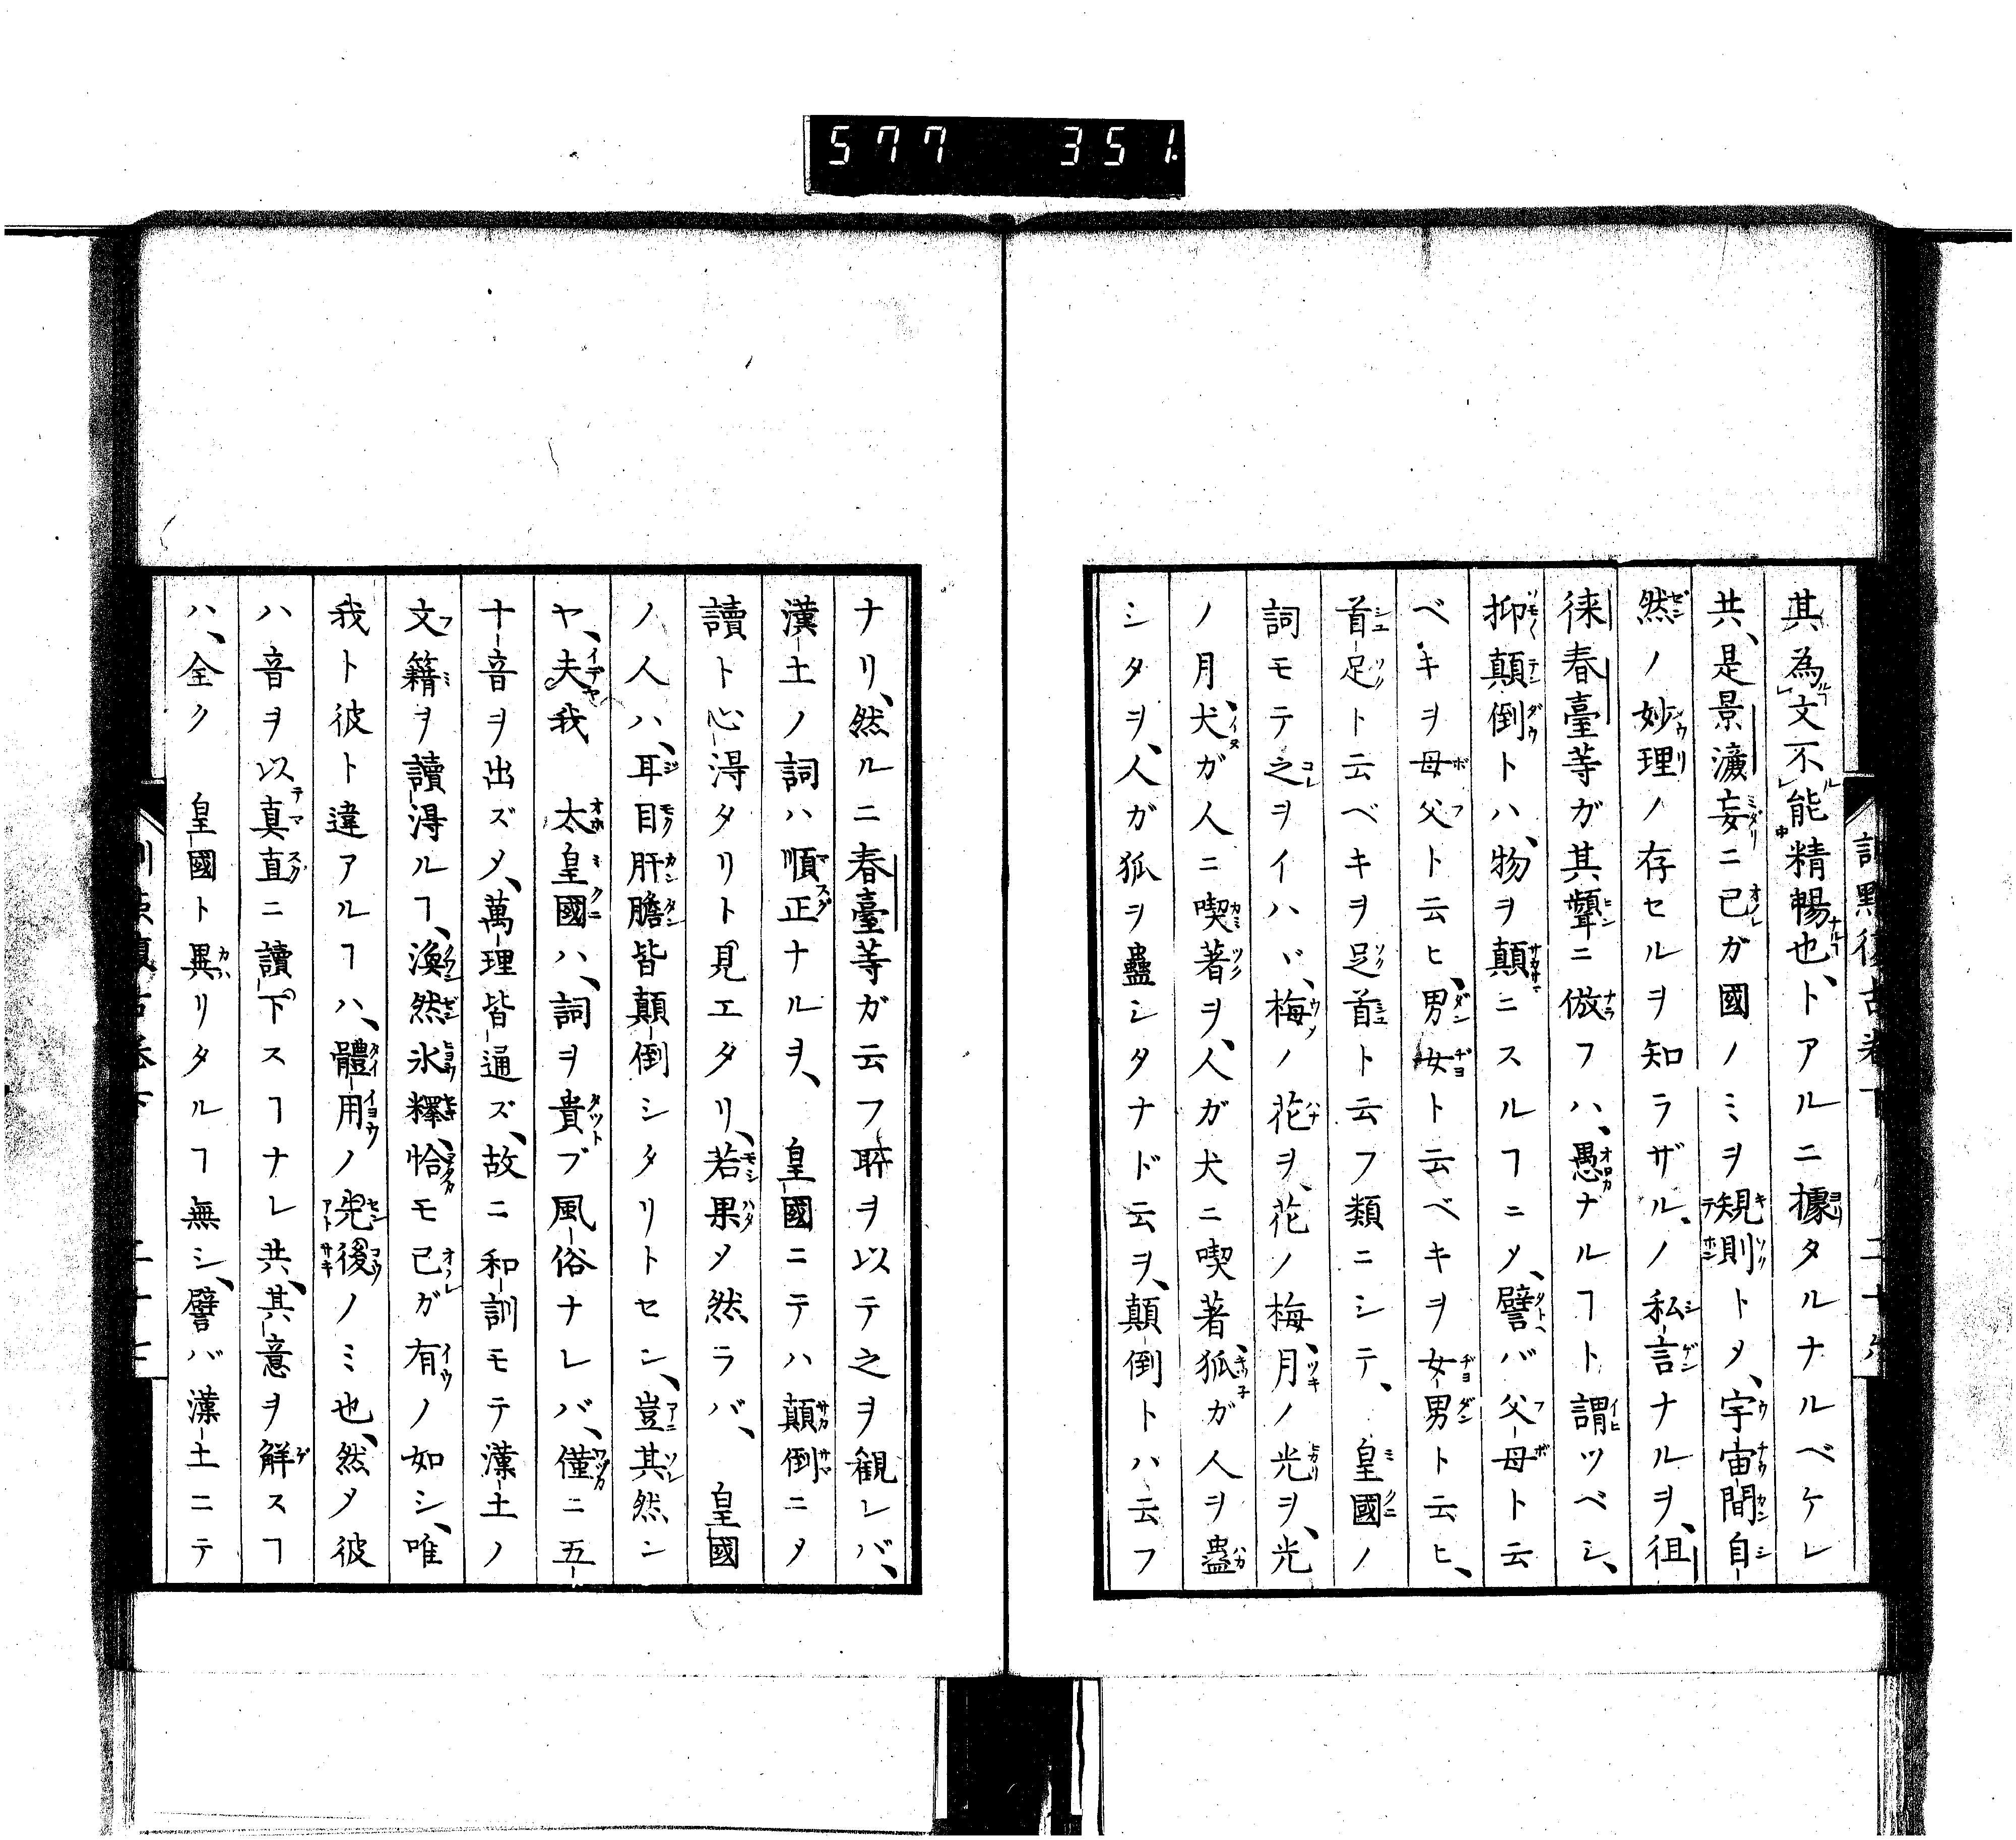 577 351.
其為文不能精暢也、トアルニ據タルナルベケレ
共、是景濂妄ニ己ガ國ノミヲ規則トメ、宇宙間自
然ノ妙理ノ存セルヲ知ラザル、ノ私言ナルヲ、徂
徠春臺等ガ其顰ニ倣フハ、愚ナルヿト謂ツベシ、
抑顛倒トハ、物ヲ顛ニスルヿニメ、譬バ父母ト云
ベキヲ母父ト云ヒ、男女ト云ベキヲ女男ト云ヒ、
首足ト云ベキヲ足首ト云フ類ニシテ、皇國ノ
詞モテ之ヲイハヾ、梅ノ花ヲ、花ノ梅、月ノ光ヲ、光
ノ月、犬ガ人ニ喫著ヲ、人ガ犬ニ喫著、狐ガ人ヲ蠱
シタヲ、人ガ狐ヲ蠱シタナド云ヲ、顛倒トハ云フ
ナリ、然ルニ春臺等ガ云フ所ヲ以テ之ヲ観レバ、
漢土ノ詞ハ順正ナルヲ、皇國ニテハ顛倒ニメ
讀ト心得タリト見エタリ、若果メ然ラバ、皇國
ノ人ハ、耳目肝膽皆顛倒シタリトセン、豈其然ン
ヤ、夫我 太皇國ハ、詞ヲ貴ブ風俗ナレバ、僅ニ五
十音ヲ出ズメ、萬理皆通ズ、故ニ和訓モテ漢土ノ
文籍ヲ讀得ルヿ、渙然氷釋、恰モ己ガ有ノ如シ、唯
我ト彼ト違アルヿハ、體用ノ先後ノミ也、然メ彼
ハ音ヲ以テ真直ニ讀下スヿナレ共、其意ヲ解スヿ
ハ、全ク 皇國ト異リタルヿ無シ、譬バ漢土ニテ